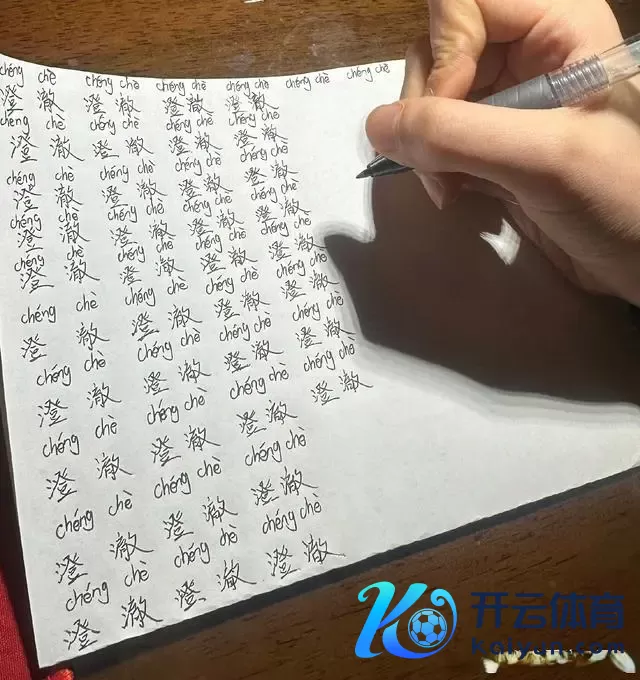 chéng chè chéng chè chéng chè chéng chè chéng chè chéng chè
澄澈 澄澈 澄澈 澄澈
chéng chè chéng chè chéng chè chéng chè
澄澈 澄澈 澄澈 澄澈
chéng chè chéng chè chéng chè chéng chè
澄澈 澄澈 澄澈 澄澈
chéng chè chéng chè chéng chè chéng chè
澄澈 澄澈 澄澈 澄澈
chéng chè chéng chè chéng chè chéng chè
澄澈 澄澈 澄澈 澄澈
chéng chè chéng chè chéng chè chéng chè
澄澈 澄澈 澄澈 澄澈
chéng chè chéng chè chéng chè chéng chè
澄澈 澄澈 澄澈 澄澈
chéng chè chéng chè chéng chè chéng chè
澄澈 澄澈 澄澈 澄澈
chéng chè chéng chè chéng chè
澄澈 澄澈 澄澈
chéng chè chéng chè chéng chè
澄澈 澄澈 澄澈
开云体育
kaiyun.com